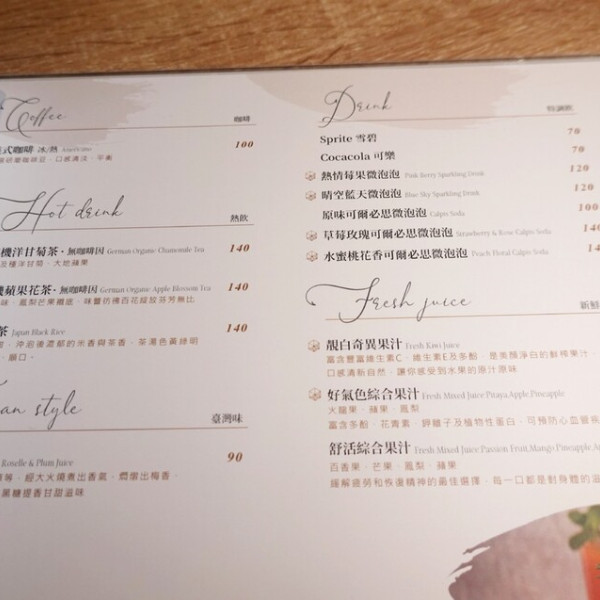 Coffee
咖啡
式咖啡 冰/熱 Americano
100
Hot drink
熱飲
機洋甘菊茶・無咖啡因 German Organic Chamomile Tea
140
蘋果花茶・無咖啡因 German Organic Apple Blossom Tea
140
味,鳳梨芒果襯底,味豐彷彿百花綻放芬芳無比
茶 Japan Black Rice
140
,沖泡後濃郁的米香與茶香,茶湯色黃綠明
順口。
an style
臺灣味
Roselle & Plum Juice
90
等,經大火燒煮出香氣,熠燉出梅香,
黑糖提香甘甜滋味
Drink
特調飲
Sprite 雪碧
70
Cocacola 可樂
70
熱情莓果微泡泡 Pink Berry Sparkling Drink
120
晴空藍天微泡泡 Blue Sky Sparkling Drink
120
原味可爾必思微泡泡 Calpis Soda
100
草莓玫瑰可爾必思微泡泡 Strawberry & Rose Calpis Soda
140
水蜜桃花香可爾必思微泡泡 Peach Floral Calpis Soda
14
Fresh juice
新鮮
靚白奇異果汁 Fresh Kiwi Juice
富含豐富維生素C、維生素E及多酚,是美顏淨白的鮮榨果汁,
口感清新自然,讓你感受到水果的原汁原味
好氣色綜合果汁 Fresh Mixed Juice:Pitaya,Apple,Pineapple
火龍果、蘋果、鳳梨
富含多酚、花青素、鉀離子及植物性蛋白,可預防心血管疾
舒活綜合果汁 Fresh Mixed Juice:Passion Fruit,Mango,Pineapple,Ap
百香果、芒果、鳳梨、蘋果
緩解疲勞和恢復精神的最佳選擇,每一口都是對身體的滋